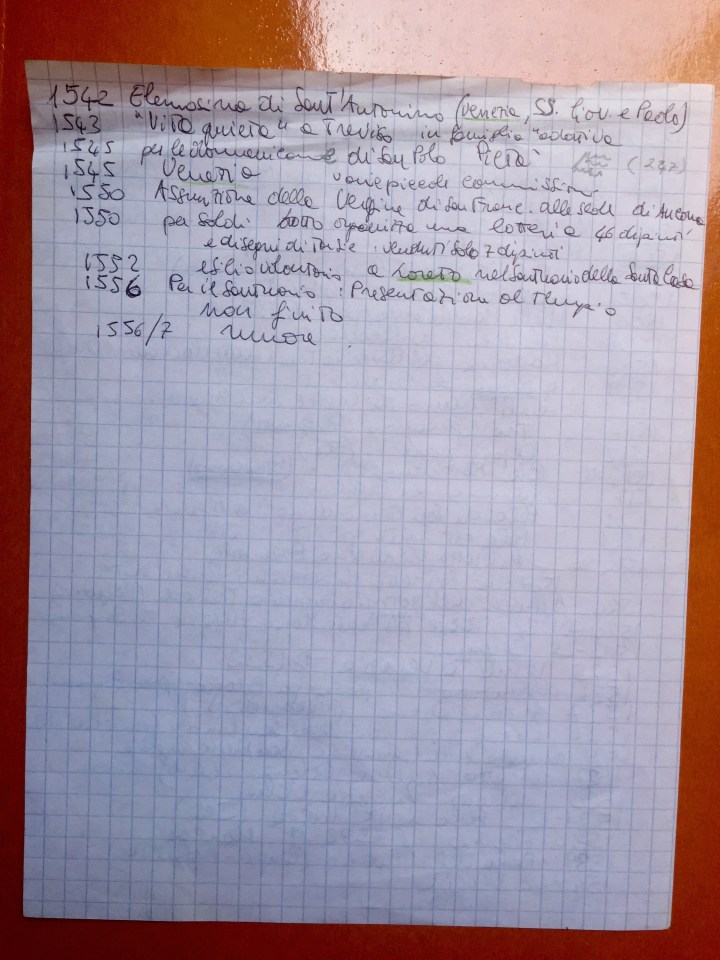 1542 Elemosina di Sant'Antonino (Venezia, SS. Giov. e Paolo)
1543 "Vita quieta" a Treviso in famiglia adottiva
1545 per le domenicane di San Polo Pietà (237)
1545 Venezia varie piccole commissioni
1550 Assunzione della Vergine di San Franc. alle Scale di Ancona
1550 per soldi Lotto organizza una lotteria 46 dipinti
e disegni di tarsie. venduti solo 7 dipinti
1552 esilio volontario a Loreto nel Santuario della Santa Casa
1556 Per il Santuario: Presentazione al Tempio
non finito
1556/7 muore.